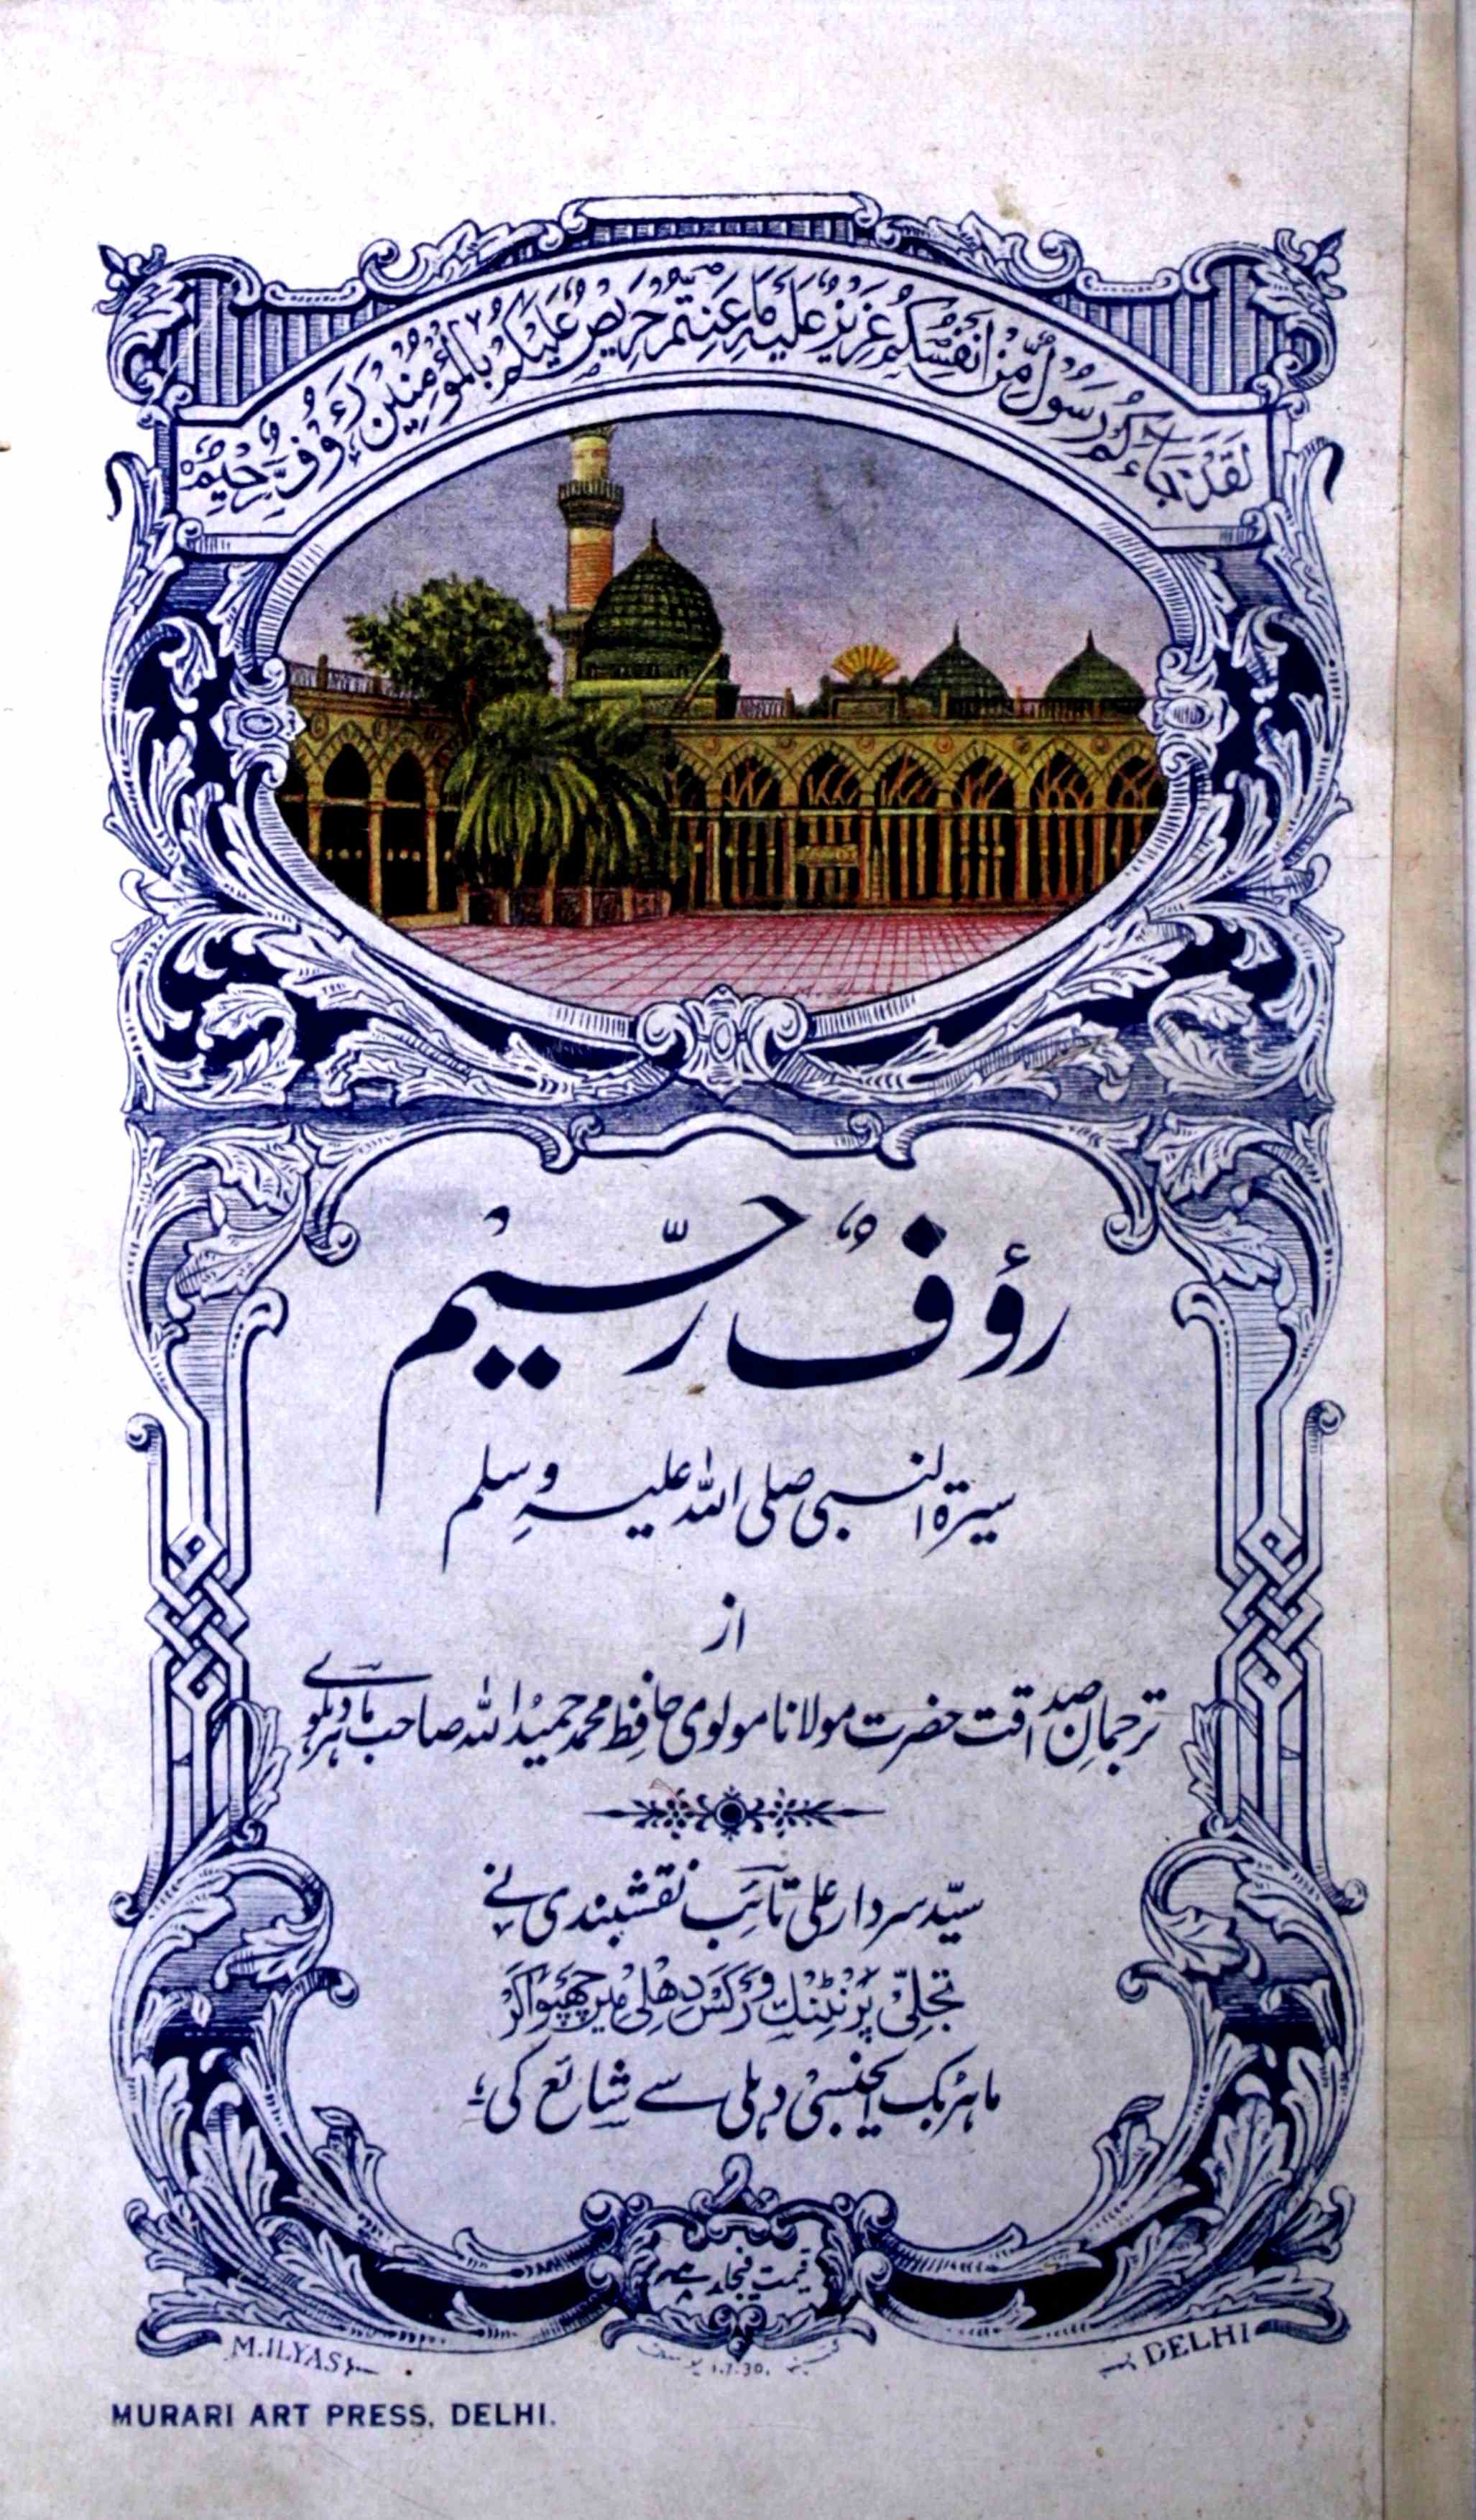 لَقَدْ جَآءَكُمْ رَسُوْلٌ مِّنْ اَنْفُسِكُمْ عَزِيْزٌ عَلَيْهِ مَا عَنِتُّمْ حَرِيْصٌ عَلَيْكُمْ بِالْمُؤْمِنِيْنَ رَءُوْفٌ رَّحِيْمٌ
رؤفٌ رّحیْم
سیرۃ النبی صلی اللہ علیہ وسلم
از
ترجمانِ صداقت حضرت مولانا مولوی حافظ محمد حمیدُ اللہ صاحب ماہر دہلوی
سیّد سردار علی تائب نقشبندی نے
تجلّی پرنٹنگ ورکس دھلی میں چھپواکر
ماہر بک ایجنسی دہلی سے شائع کی؛
قیمت فیجلد
M. ILYAS
1.7.30.
DELHI
MURARI ART PRESS, DELHI.